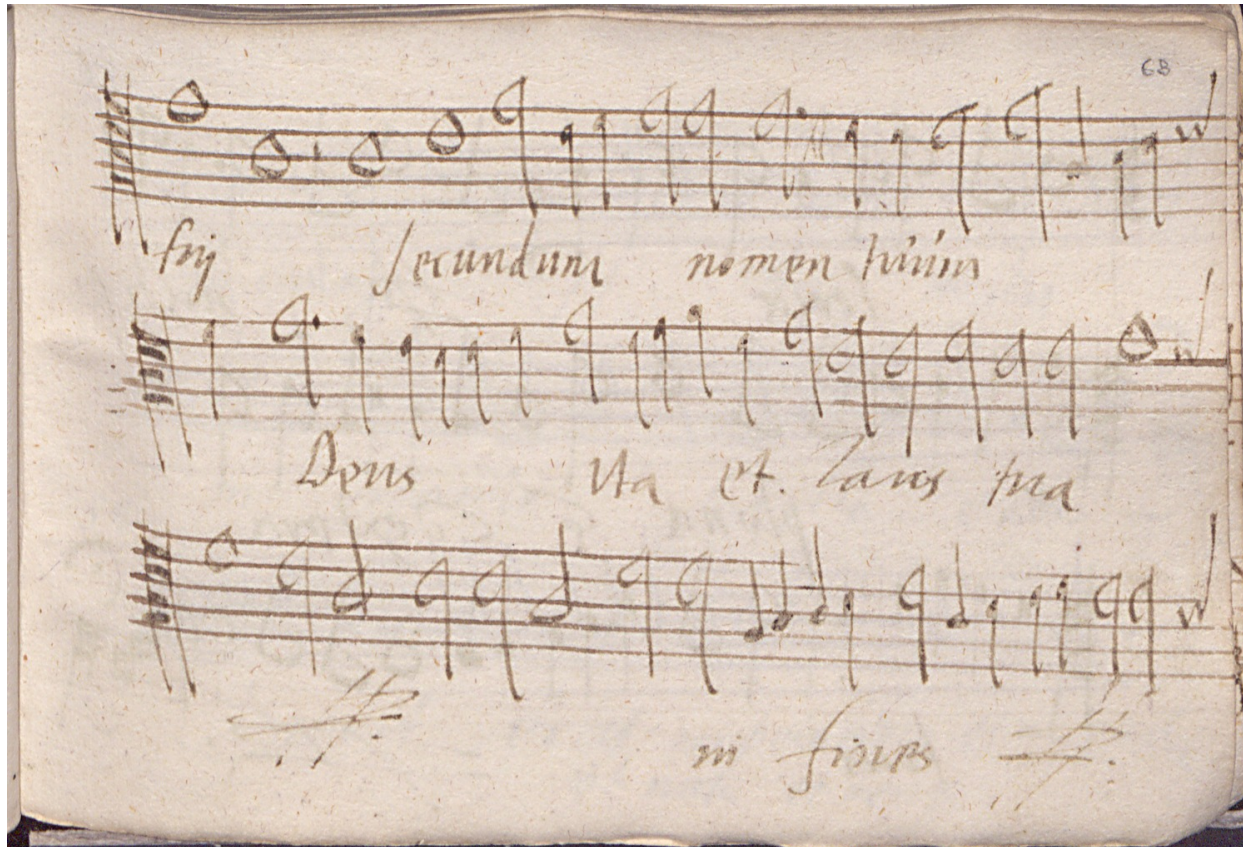 68
suij secundum nomen tuum
Deus Ita et laus tua
in fines